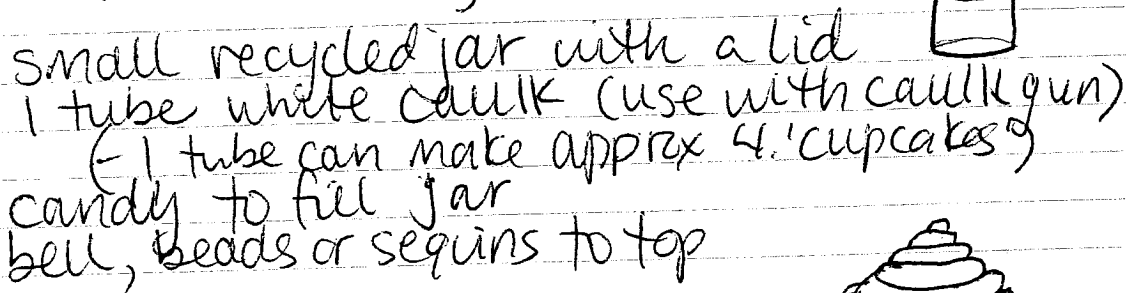 small recycled jar with a lid
1 tube white caulk (use with caulk gun)
(-1 tube can make apprx 4 'cupcakes')
candy to fill jar
bell, beads or sequins to top